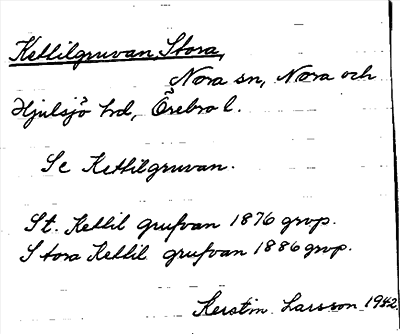 Kettilgruvan, Stora,
Nora sn, Nora och
Hjulsjö hd, Örebro l.
Se Kettilgruvan.
St. Kettil grufvan 1876 grvp.
Stora Kettil grufvan 1886 grvp.
Kerstin Larsson 1942